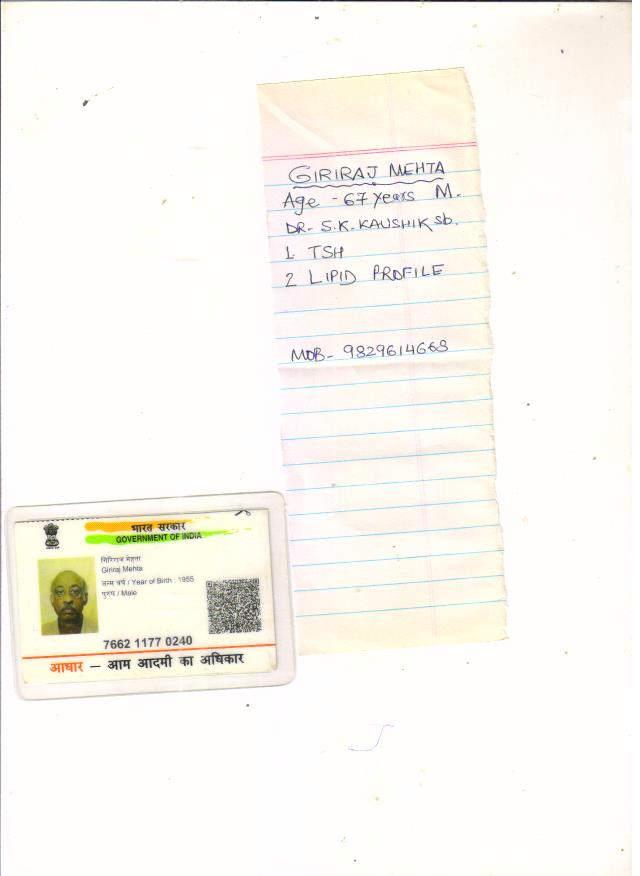 GIRIRAJ MEHTA
Age - 67 years M.
DR- S.K. KAUSHIK sb.
1. TSH
2 LIPID PROFILE
MOB- 9829614668
भारत सरकार
GOVERNMENT OF INDIA
गिरिराज मेहता
Giriraj Mehta
जन्म वर्ष / Year of Birth : 1955
पुरुष / Male
7662 1177 0240
आधार – आम आदमी का अधिकार